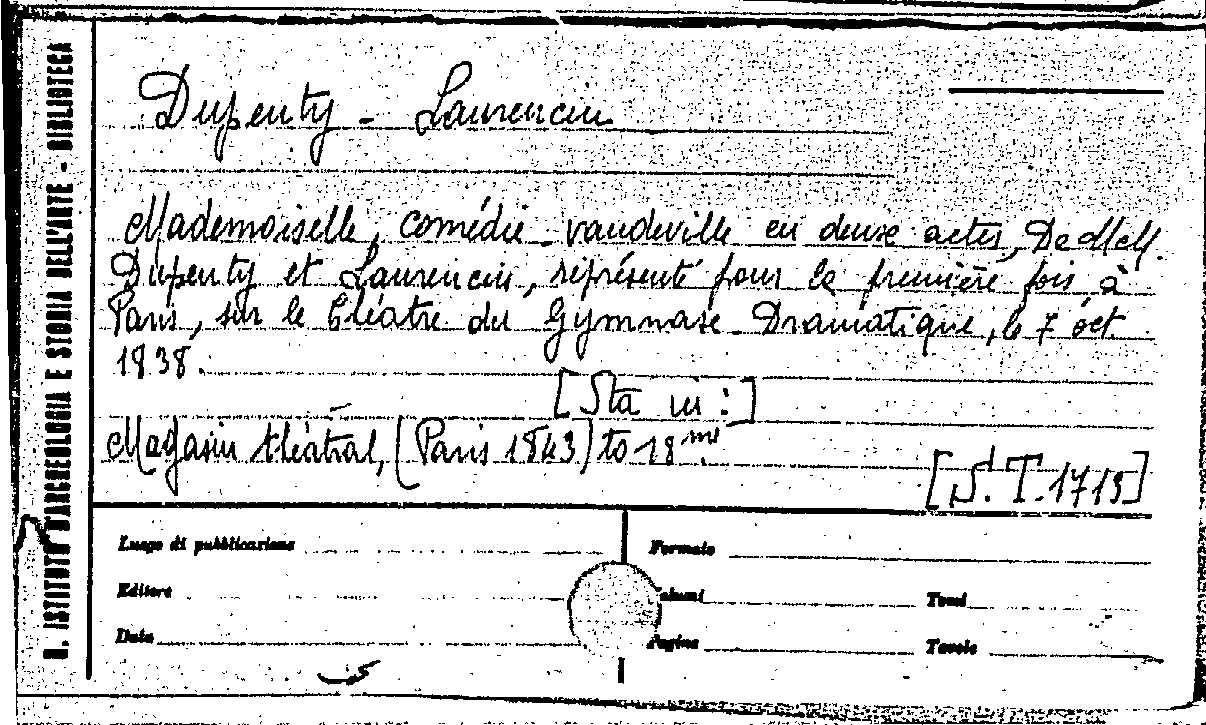 R. ISTITUTO D'ARCHEOLOGIA E STORIA DELL'ARTE - BIBLIOTECA
Dupenty - Laurencin
Mademoiselle, comédie-vaudeville en deux actes, De MM.
Dupenty et Laurencin, représenté pour la première fois, à
Paris, sur le théatre du Gymnase-Dramatique, le 7 oct.
1838.
[Sta in:]
Magasin théatral, (Paris 1843) to 18me.
[S. T. 1713]
Luogo di pubblicazione
Formato
Editore
Volumi
Tomi
Data
Pagine
Tavole